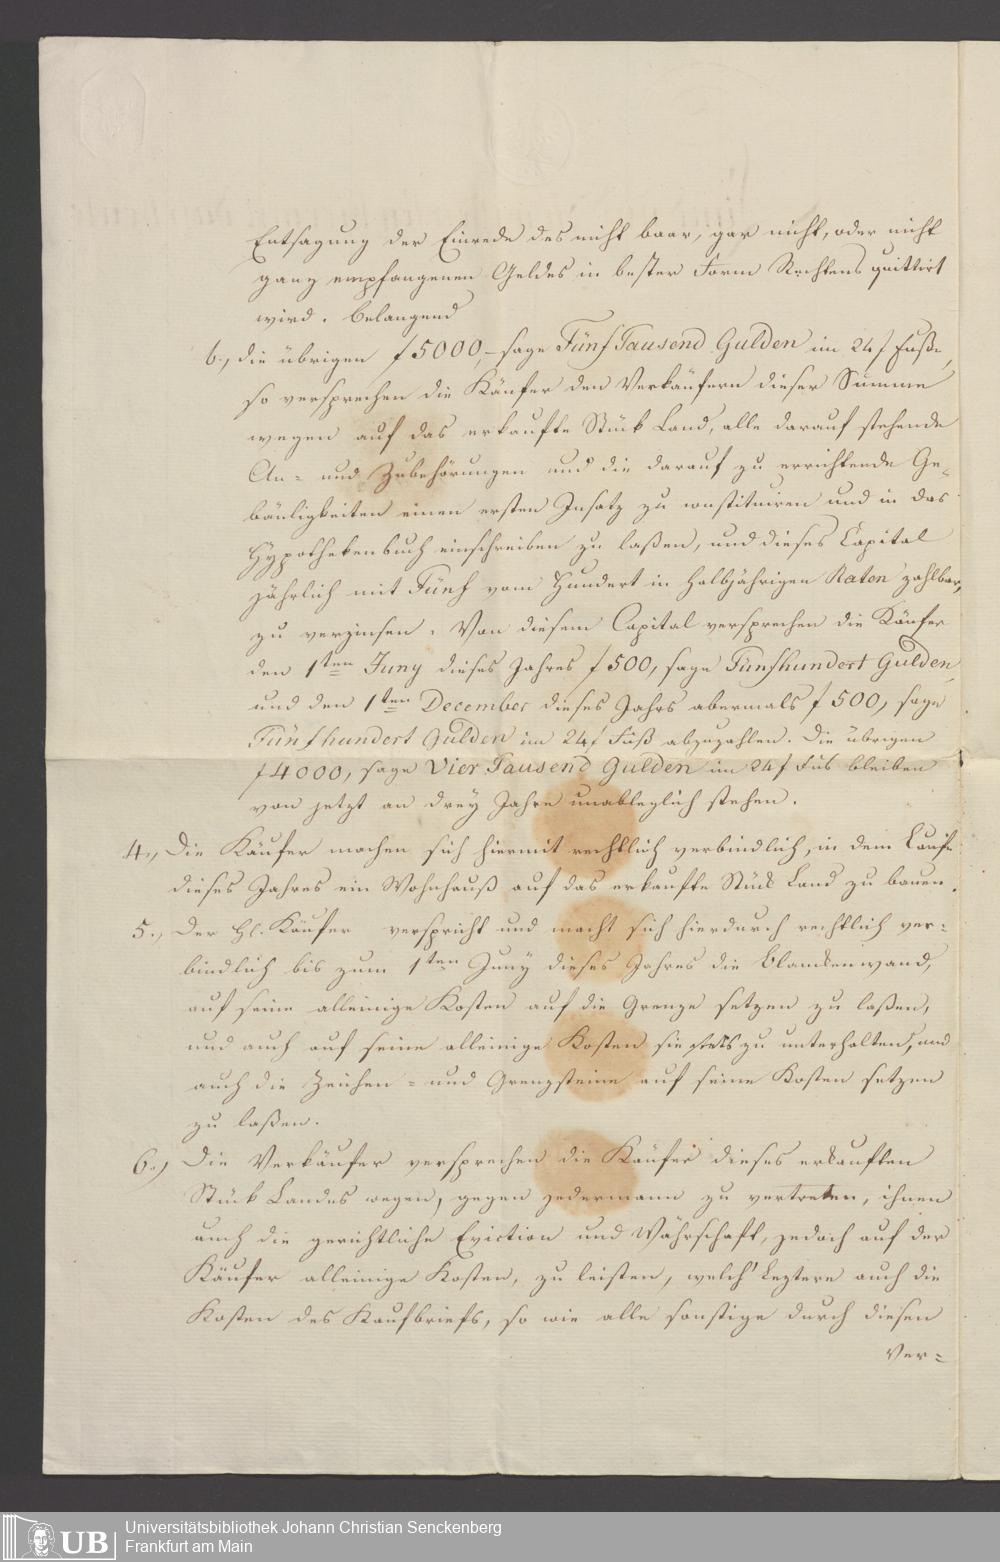 Entsagung der Einrede des nicht baar, gar nicht, oder nicht
ganz empfangenen Geldes in bester Form Rechtens quittirt
wird. Belangend
b., die übrigen f 5000,- sage Fünf Tausend Gulden im 24 f Fuße,
so versprechen die Käufer den Verkäufern dieser Summe
wegen auf das erkaufte Stück Land, alle darauf stehende
An- und Zubehörungen und die darauf zu errichtende Ge-
bäuligkeiten einen ersten Insatz zu constituiren und in das
Hypothekenbuch einschreiben zu laßen, und dieses Capital
jährlich mit Fünf vom Hundert in halbjährigen Raten zahlbar,
zu verzinsen. Von diesem Capital versprechen die Käufer
den 1ten Juny dieses Jahres f 500, sage Fünfhundert Gulden,
und den 1ten December dieses Jahrs abermals f 500, sage
Fünfhundert Gulden im 24 f Fuß abzuzahlen. Die übrigen
f 4000, sage Vier Tausend Gulden im 24 f Fus bleiben
von jetzt an drey Jahre unableglich stehen.
4., Die Käufer machen sich hiermit rechtlich verbindlich, in dem Laufe
dieses Jahres ein Wohnhauß auf das erkaufte Stück Land zu bauen.
5., Der H. Käufer verspricht und macht sich hierdurch rechtlich ver-
bindlich bis zum 1ten Juny dieses Jahres die Blankenwand,
auf seine alleinige Kosten auf die Grenze setzen zu laßen,
und auch auf seine alleinige Kosten sie stets zu unterhalten, und
auch die Zeichen- und Grenzsteine auf seine Kosten setzen
zu laßen.
6., Die Verkäufer versprechen die Käufer dieses erkauften
Stück Landes wegen, gegen jedermann zu vertreten, ihnen
auch die gerichtliche Eviction und Währschaft, jedoch auf der
Käufer alleinige Kosten, zu leisten, welch' Leztere auch die
Kosten des Kaufbriefs, so wie alle sonstige durch diesen
Ver-
UB
Universitätsbibliothek Johann Christian Senckenberg
Frankfurt am Main